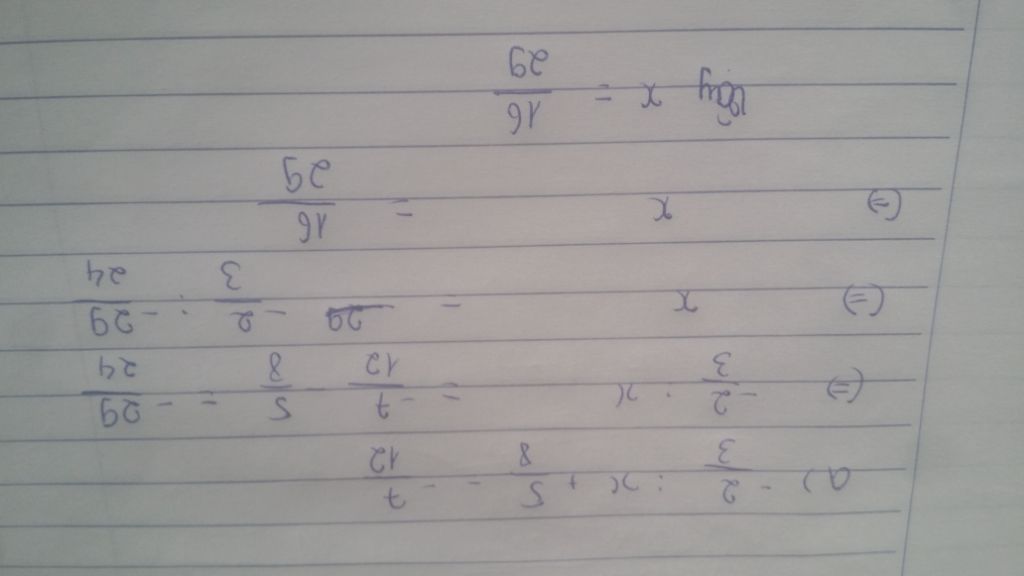 a) -2/3 : x + 5/8 = -7/12
(=) -2/3 : x = -7/12 - 5/8 = -29/24
(=) x = -2/3 : -29/24
(=) x = 16/29
Vậy x = 16/29